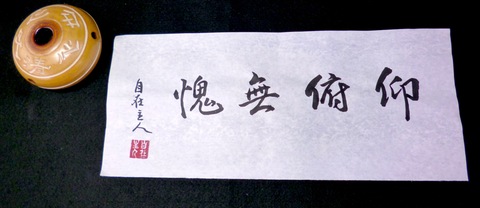 仰俯無愧
自在主人